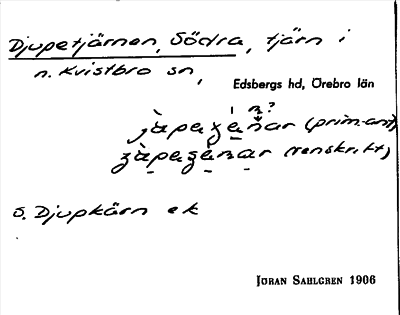 Djupetjärnen, Södra, tjärn i
n. Kvistbro sn,
Edsbergs hd, Örebro län
n?
(prim.ant)
(renskrift)
S. Djupkärn ek
JÖRAN SAHLGREN 1906